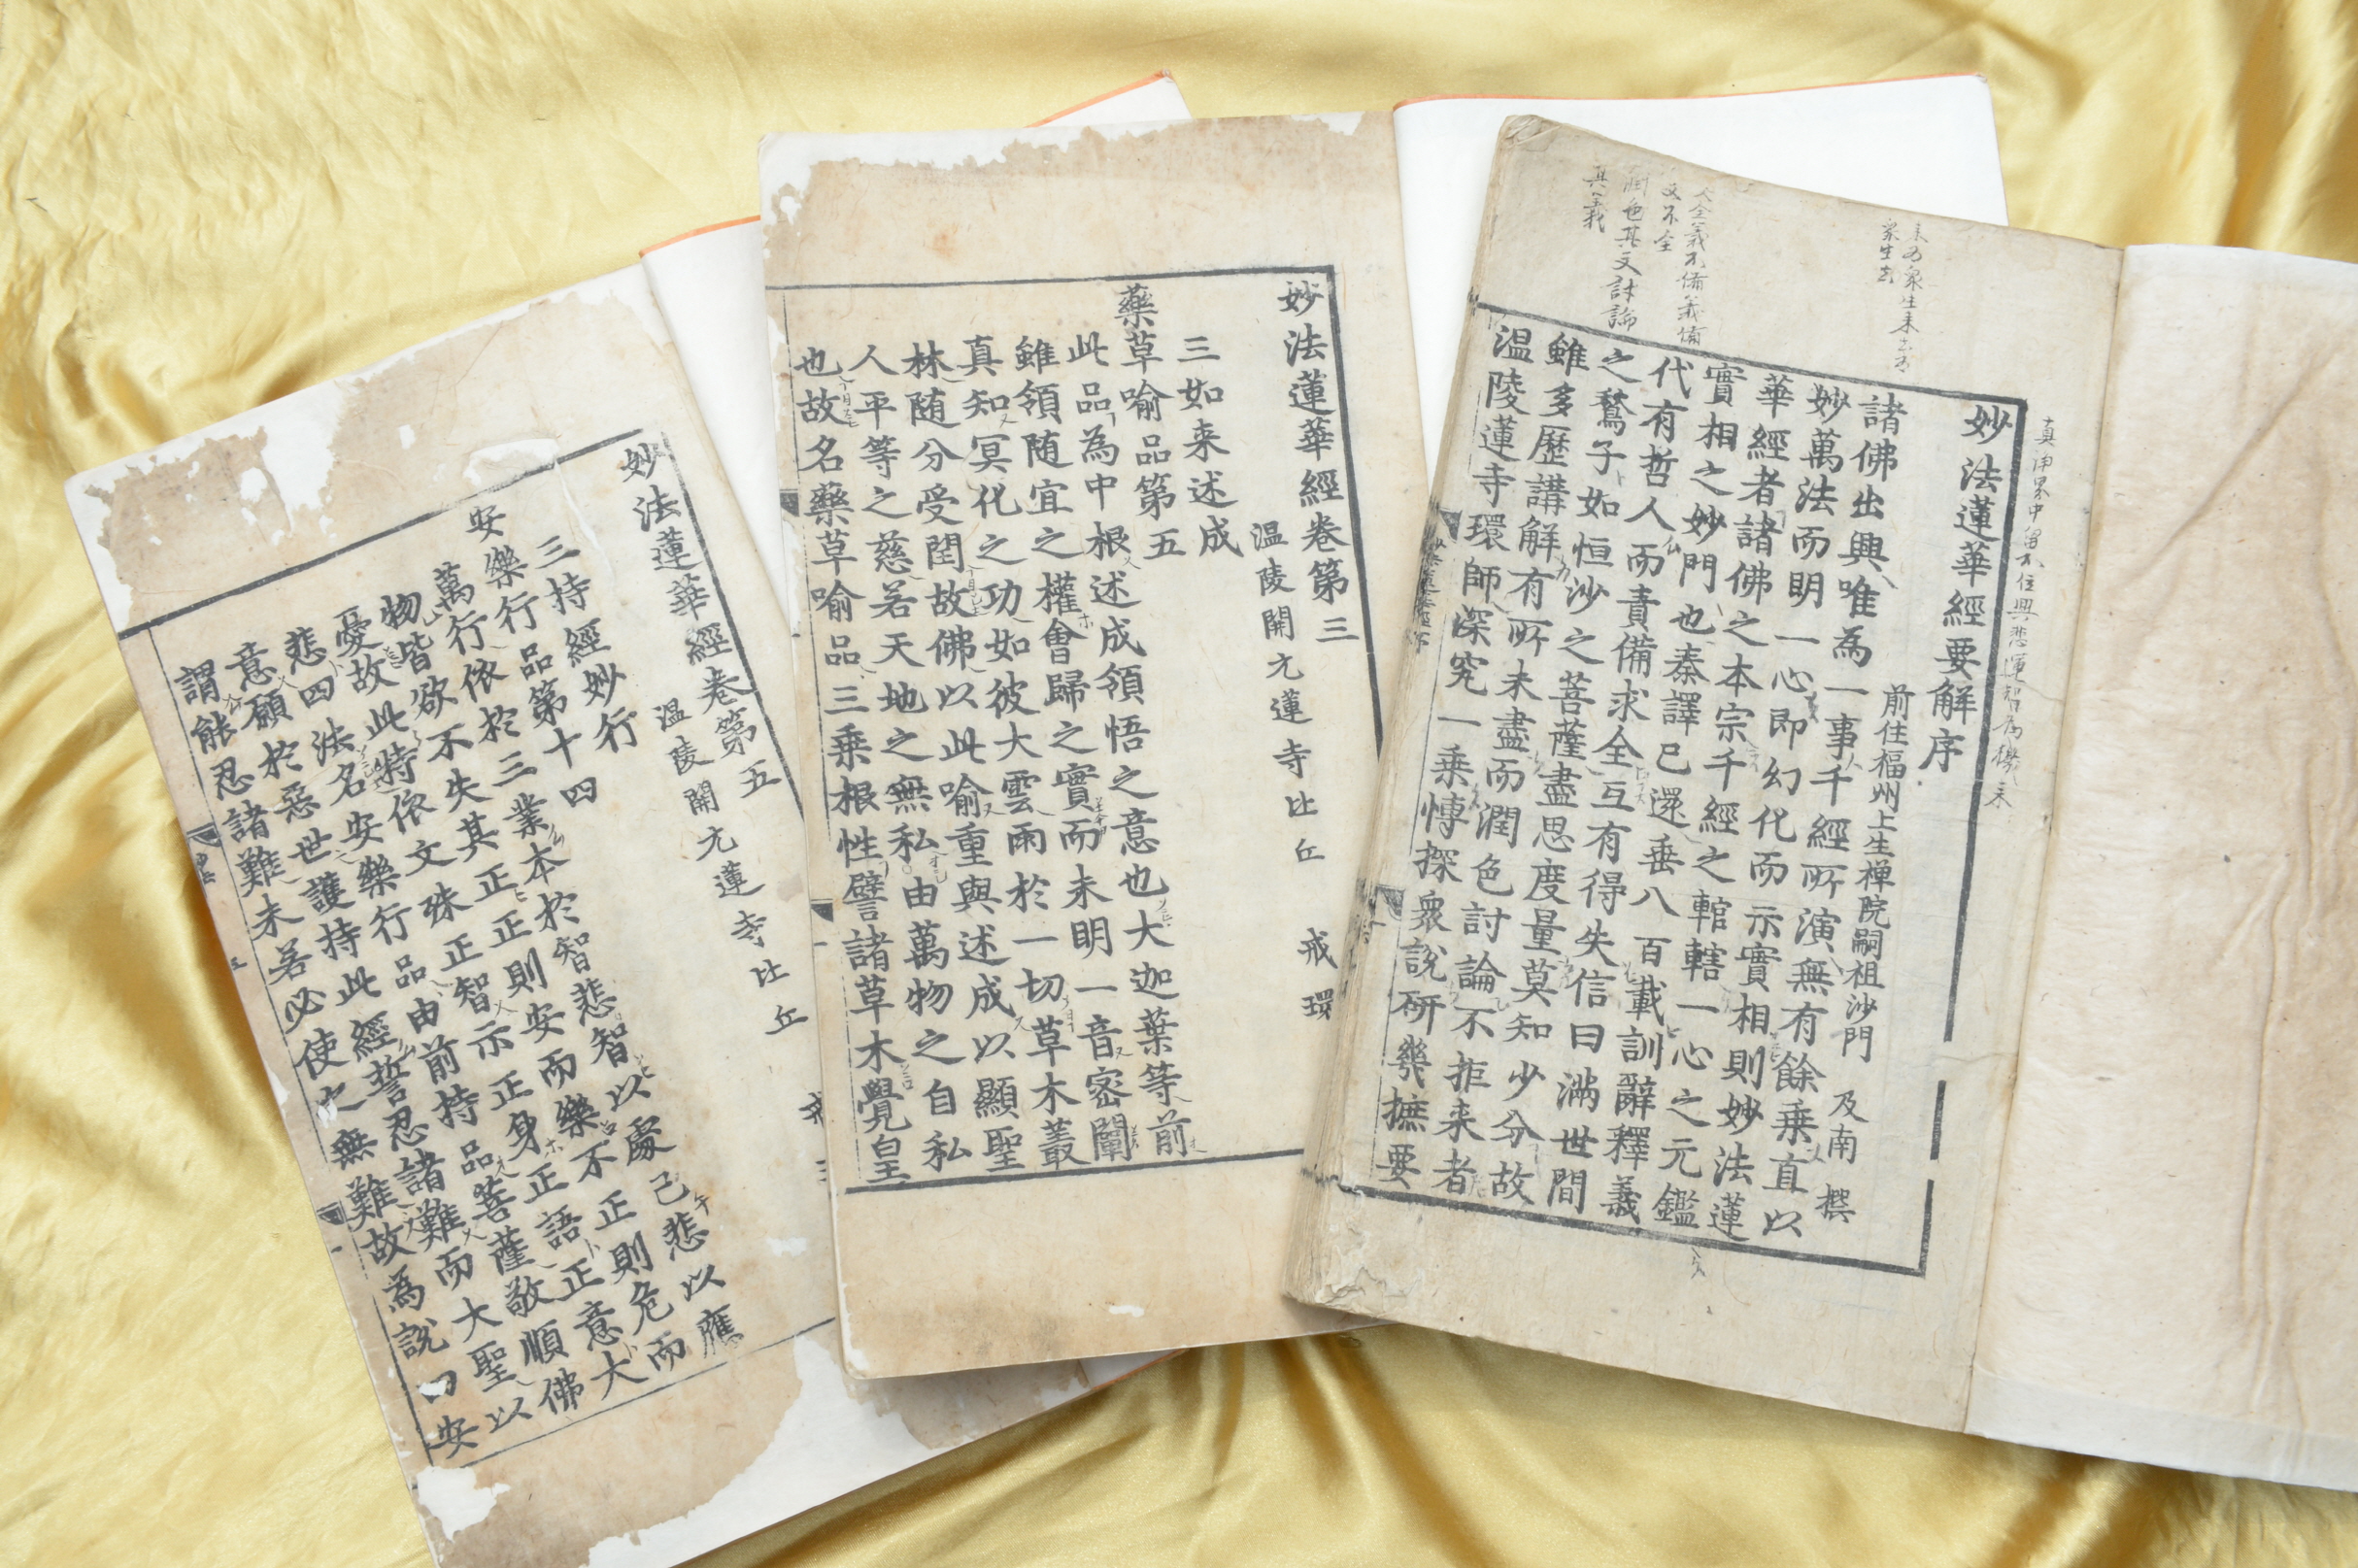 妙法蓮華經要解序
前住福州上生禅院嗣祖沙門 及南 撰
諸佛出興唯為一事千經所演無有餘乗直以
妙萬法而明一心即幻化而示實相則妙法蓮
華經者諸佛之本宗千經之輨轄一心之元鑑
實相之妙門也秦譯已還垂八百載訓辭釋義
代有哲人而責備求全互有得失信曰滿世間
之鶖子如恒沙之菩薩盡思度量莫知少分故
雖多歷講解有所未盡而潤色討論不拒来者
温陵蓮寺環師深究一乗愽探衆說研幾摭要
妙法蓮華經卷第三
温陵開元蓮寺比丘 戒環
三如来述成
藥草喻品第五
此品為中根述成領悟之意也大迦葉等前
雖領随宜之權會歸之實而未明一音密闡
真知冥化之功如彼大雲雨於一切草木叢
林随分受閏故佛以此喻重與述成以顯聖
人平等之慈若天地之無私由萬物之自私
也故名藥草喻品三乗根性譬諸草木覺皇
妙法蓮華經卷第五
温陵開元蓮寺比丘 戒
三持經妙行
安樂行品第十四
萬行依於三業本於智悲智以處己悲以應
物皆欲不失其正正則安而樂不正則危而
憂故此特依文殊正智示正身正語正意大
悲四法名安樂行品由前持品菩薩敬順佛
意願於惡世護持此經誓忍諸難而大聖以
謂能忍諸難未若必使之無難故為說四安